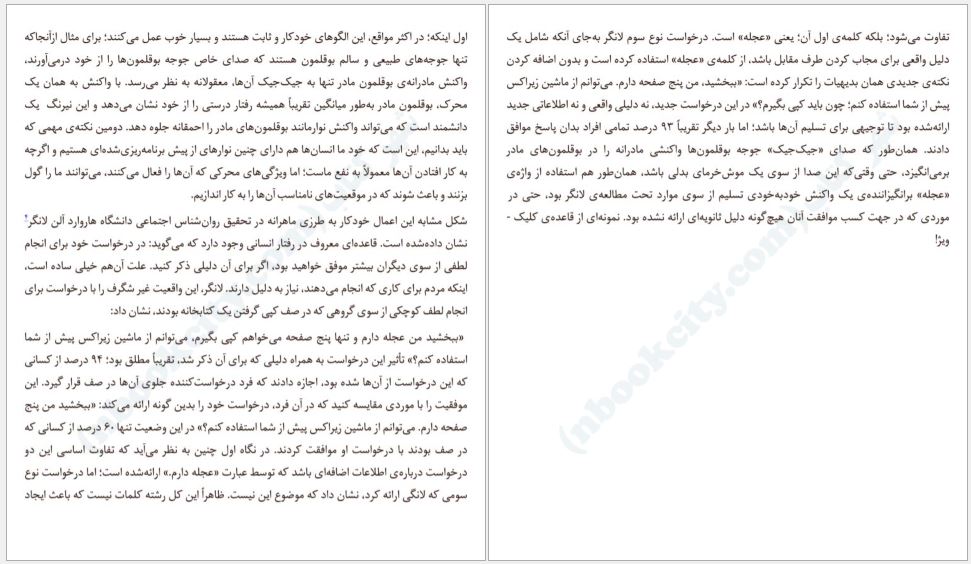 اول اینکه؛ در اکثر مواقع، این الگوهای خودکار و ثابت هستند و بسیار خوب عمل می‌کنند؛ برای مثال ازآنجاکه
تنها جوجه‌های طبیعی و سالم بوقلمون هستند که صدای خاص جوجه بوقلمون‌ها را از خود درمی‌آورند،
واکنش مادرانه‌ی بوقلمون مادر تنها به جیک‌جیک آن‌ها، معقولانه به نظر می‌رسد. با واکنش به همان یک
محرک، بوقلمون مادر به‌طور میانگین تقریباً همیشه رفتار درستی را از خود نشان می‌دهد و این نیرنگ یک
دانشمند است که می‌تواند واکنش نوارمانند بوقلمون‌های مادر را احمقانه جلوه دهد. دومین نکته‌ی مهمی که
باید بدانیم، این است که خود ما انسان‌ها هم دارای چنین نوارهای از پیش برنامه‌ریزی‌شده‌ای هستیم و اگرچه
به کار افتادن آن‌ها معمولاً به نفع ماست؛ اما ویژگی‌های محرکی که آن‌ها را فعال می‌کنند، می‌توانند ما را گول
بزنند و باعث شوند که در موقعیت‌های نامناسب آن‌ها را به کار اندازیم.
شکل مشابه این اعمال خودکار به طرزی ماهرانه در تحقیق روان‌شناس اجتماعی دانشگاه هاروارد آلن لانگر¹
نشان داده‌شده است. قاعده‌ای معروف در رفتار انسانی وجود دارد که می‌گوید: در درخواست خود برای انجام
لطفی از سوی دیگران بیشتر موفق خواهید بود، اگر برای آن دلیلی ذکر کنید. علت آن‌هم خیلی ساده است،
اینکه مردم برای کاری که انجام می‌دهند، نیاز به دلیل دارند. لانگر، این واقعیت غیر شگرف را با درخواست برای
انجام لطف کوچکی از سوی گروهی که در صف کپی گرفتن یک کتابخانه بودند، نشان داد:
«ببخشید من عجله دارم و تنها پنج صفحه می‌خواهم کپی بگیرم، می‌توانم از ماشین زیراکس پیش از شما
استفاده کنم؟» تأثیر این درخواست به همراه دلیلی که برای آن ذکر شد، تقریباً مطلق بود؛ ۹۴ درصد از کسانی
که این درخواست از آن‌ها شده بود، اجازه دادند که فرد درخواست‌کننده جلوی آن‌ها در صف قرار گیرد. این
موفقیت را با موردی مقایسه کنید که در آن فرد، درخواست خود را بدین گونه ارائه می‌کند: «ببخشید من پنج
صفحه دارم. می‌توانم از ماشین زیراکس پیش از شما استفاده کنم؟» در این وضعیت تنها ۶۰ درصد از کسانی که
در صف بودند با درخواست او موافقت کردند. در نگاه اول چنین به نظر می‌آید که تفاوت اساسی این دو
درخواست درباره‌ی اطلاعات اضافه‌ای باشد که توسط عبارت «عجله دارم.» ارائه‌شده است؛ اما درخواست نوع
سومی که لانگی ارائه کرد، نشان داد که موضوع این نیست. ظاهراً این کل رشته کلمات نیست که باعث ایجاد
تفاوت می‌شود؛ بلکه کلمه‌ی اول آن؛ یعنی «عجله» است. درخواست نوع سوم لانگر به‌جای آنکه شامل یک
دلیل واقعی برای مجاب کردن طرف مقابل باشد، از کلمه‌ی «عجله» استفاده کرده است و بدون اضافه کردن
نکته‌ی جدیدی همان بدیهیات را تکرار کرده است: «ببخشید، من پنج صفحه دارم. می‌توانم از ماشین زیراکس
پیش از شما استفاده کنم؛ چون باید کپی بگیرم؟» در این درخواست جدید، نه دلیلی واقعی و نه اطلاعاتی جدید
ارائه‌شده بود تا توجیهی برای تسلیم آن‌ها باشد؛ اما بار دیگر تقریباً ۹۳ درصد تمامی افراد بدان پاسخ موافق
دادند. همان‌طور که صدای «جیک‌جیک» جوجه بوقلمون‌ها واکنشی مادرانه را در بوقلمون‌های مادر
برمی‌انگیزد، حتی وقتی‌که این صدا از سوی یک موش‌خرمای بدلی باشد، همان‌طور هم استفاده از واژه‌ی
«عجله» برانگیزاننده‌ی یک واکنش خودبه‌خودی تسلیم از سوی موارد تحت مطالعه‌ی لانگر بود، حتی در
موردی که در جهت کسب موافقت آنان هیچ‌گونه دلیل ثانویه‌ای ارائه نشده بود. نمونه‌ای از قاعده‌ی کلیک -
ویژ!
(nbookcity.com)
(nbookcity.com)